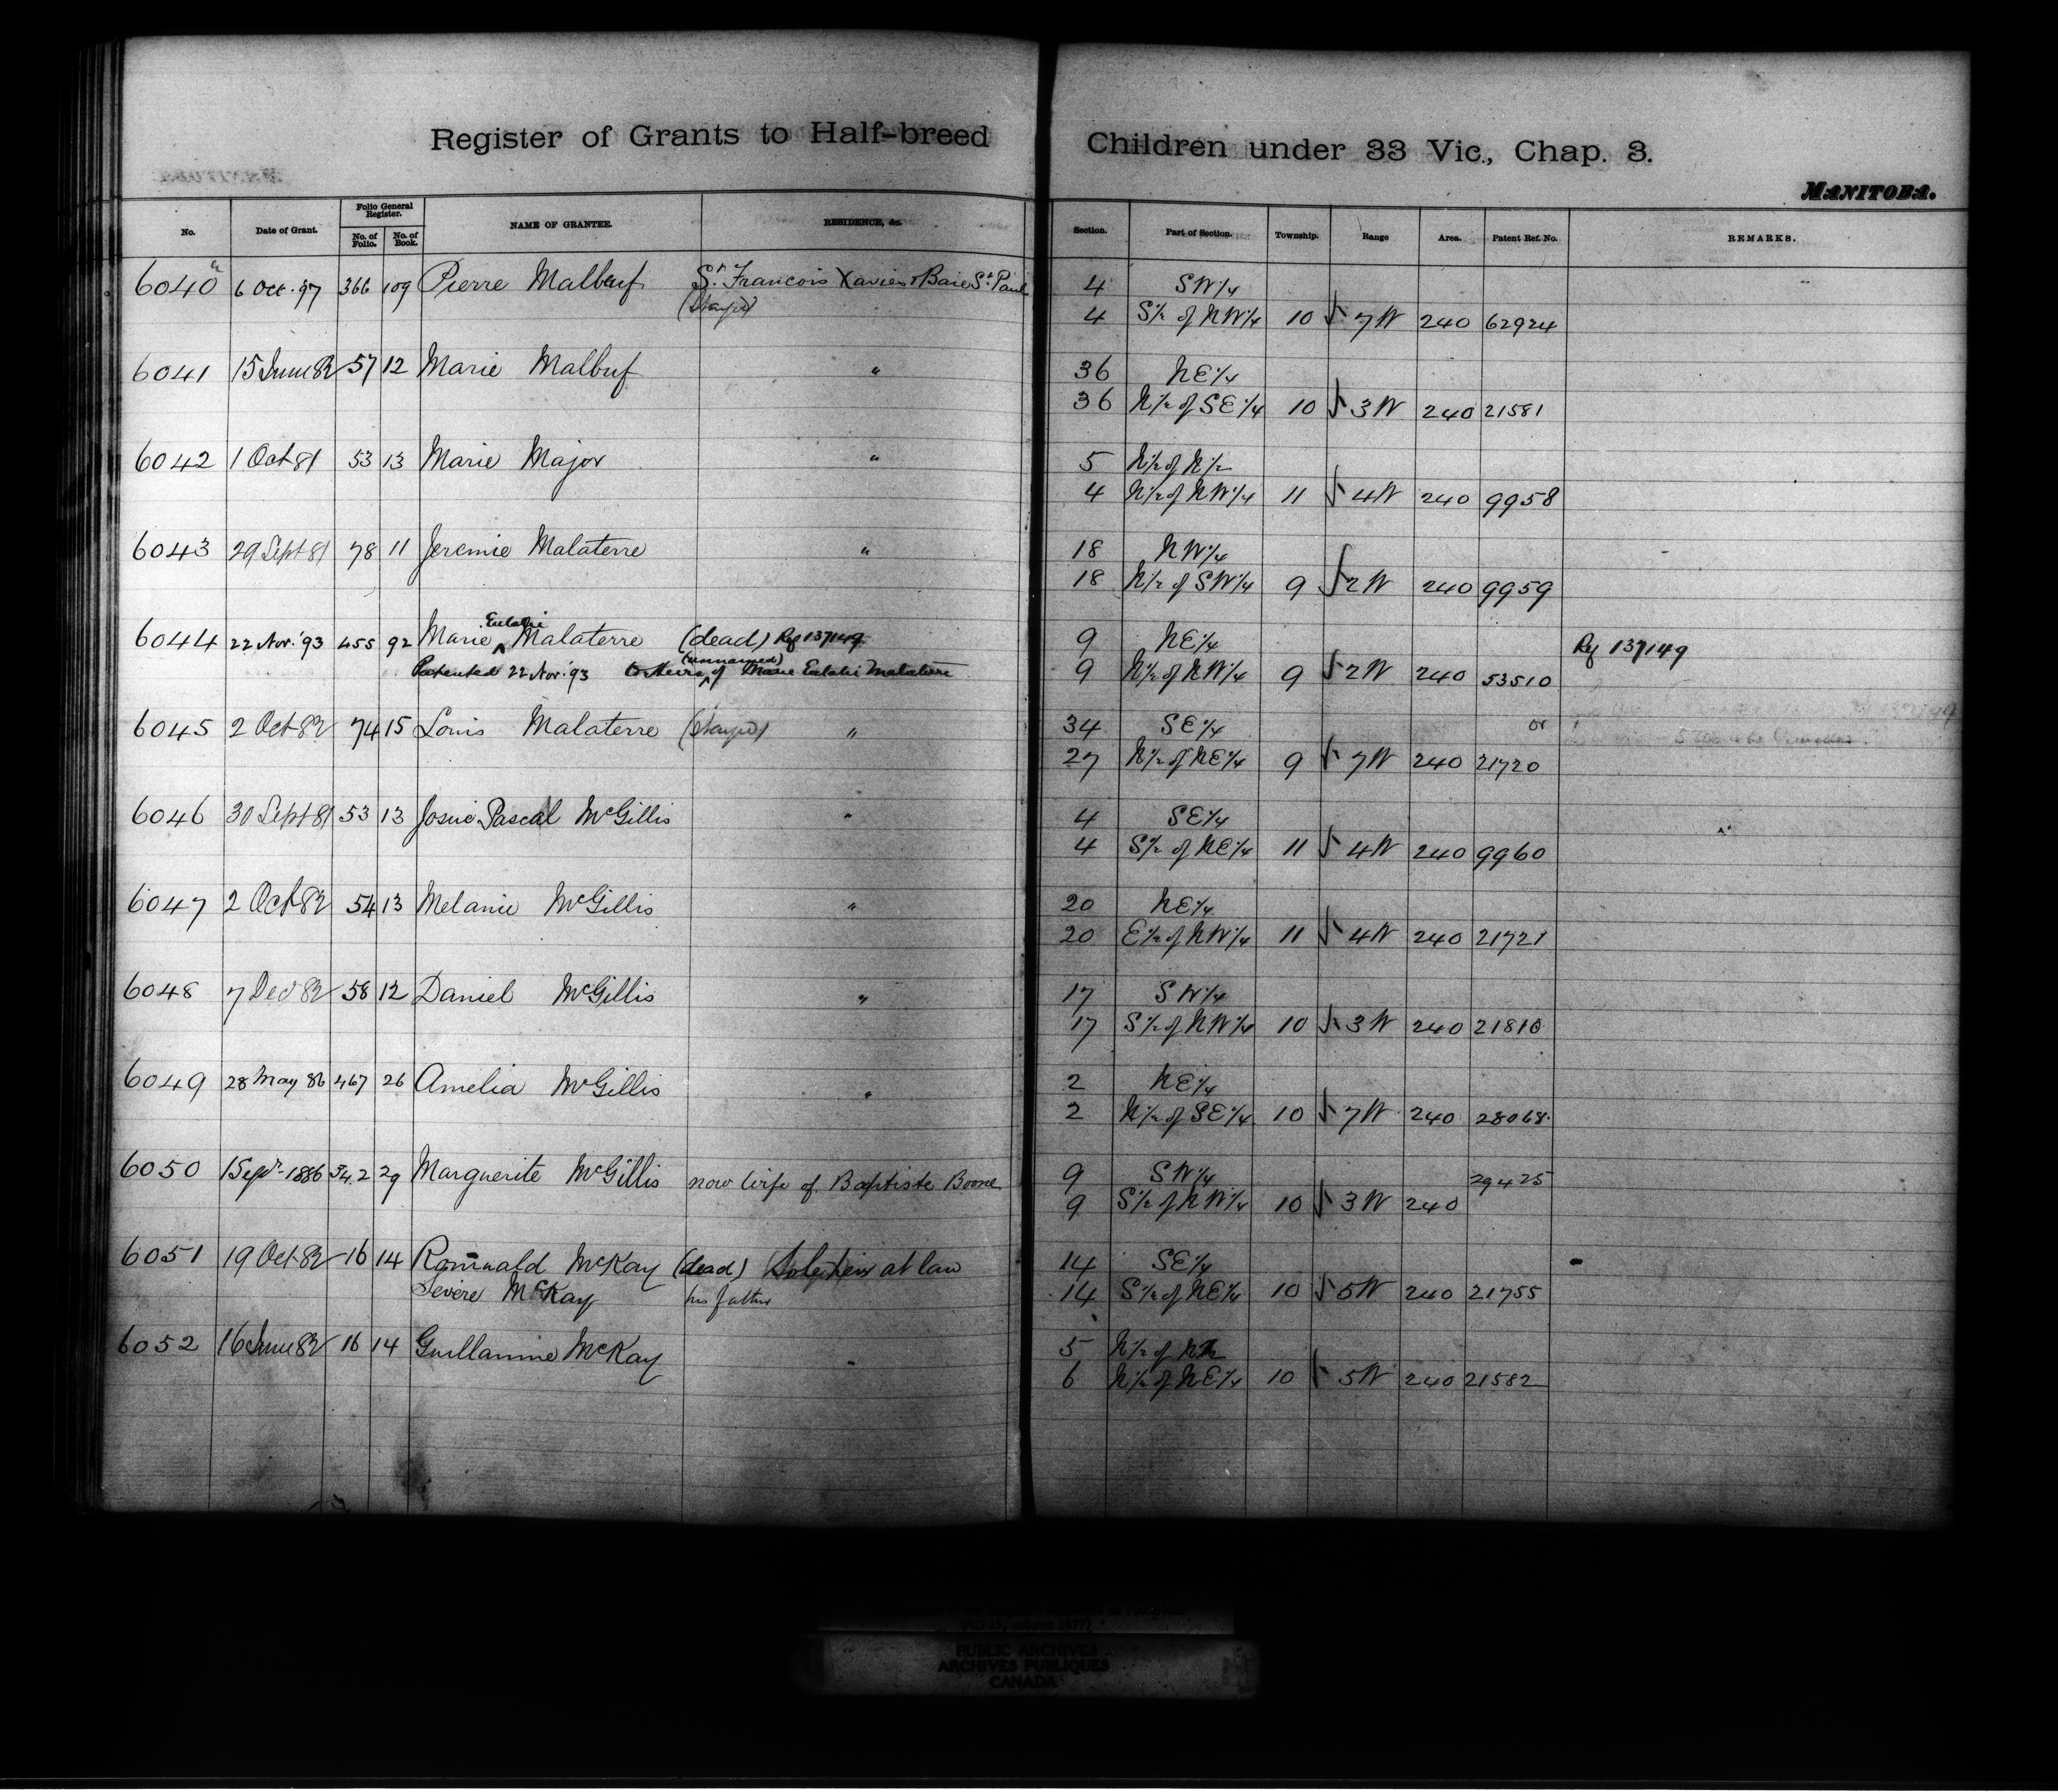 Register of Grants to Half-breed Children under 33 Vic., Chap. 3.
MANITOBA.
No. Date of Grant. Folio General Register. No. of Folio. No. of Book. NAME OF GRANTEE. RESIDENCE, &c. Section. Part of Section. Township. Range Area. Patent Ref. No. REMARKS.
6040 6 Oct. 97 366 109 Pierre Malbeuf St. Francois Xavier & Baie St. Paul 4 SW1/4
4 S1/2 of NW1/4 10 7W 240 62924
6041 15 June 82 57 12 Marie Malbuf " 36 NE1/4
36 N1/2 of SE1/4 10 3W 240 21581
6042 1 Oct 81 53 13 Marie Major " 5 N1/2 of N1/2
4 N1/2 of NW1/4 11 4W 240 9958
6043 29 Sept 81 78 11 Jeremie Malaterre " 18 NW1/4
18 N1/2 of SW1/4 9 2W 240 9959
6044 22 Nov. '93 455 92 Marie Eulalie Malaterre (dead) Ref 137149 9 NE1/4 Ref 137149
Patented 22 Nov. '93 to Heirs (unnamed) of Marie Eulalie Malaterre 9 N1/2 of NW1/4 9 2W 240 53510
6045 2 Oct 82 74 15 Louis Malaterre " 34 SE1/4 or
27 N1/2 of NE1/4 9 7W 240 21720
6046 30 Sept 81 53 13 Josué Pascal McGillis " 4 SE1/4
4 S1/2 of NE1/4 11 4W 240 9960
6047 2 Oct 82 54 13 Melanie McGillis " 20 NE1/4
20 E1/2 of NW1/4 11 4W 240 21721
6048 7 Dec 82 58 12 Daniel McGillis " 17 SW1/4
17 S1/2 of NW1/4 10 3W 240 21810
6049 28 May 86 467 26 Amelia McGillis " 2 NE1/4
2 N1/2 of SE1/4 10 7W 240 28068
6050 1 Sept. 1886 542 29 Marguerite McGillis now wife of Baptiste Boone 9 SW1/4 29425
9 S1/2 of NW1/4 10 3W 240
6051 19 Oct 82 16 14 Romuald McKay (dead) Sole heir at law 14 SE1/4
Severe McKay his father 14 S1/2 of NE1/4 10 5W 240 21755
6052 16 June 82 16 14 Guillamine McKay " 5 N1/2 of N1/2
6 N1/2 of NE1/4 10 5W 240 21582
PUBLIC ARCHIVES
ARCHIVES PUBLIQUES
CANADA